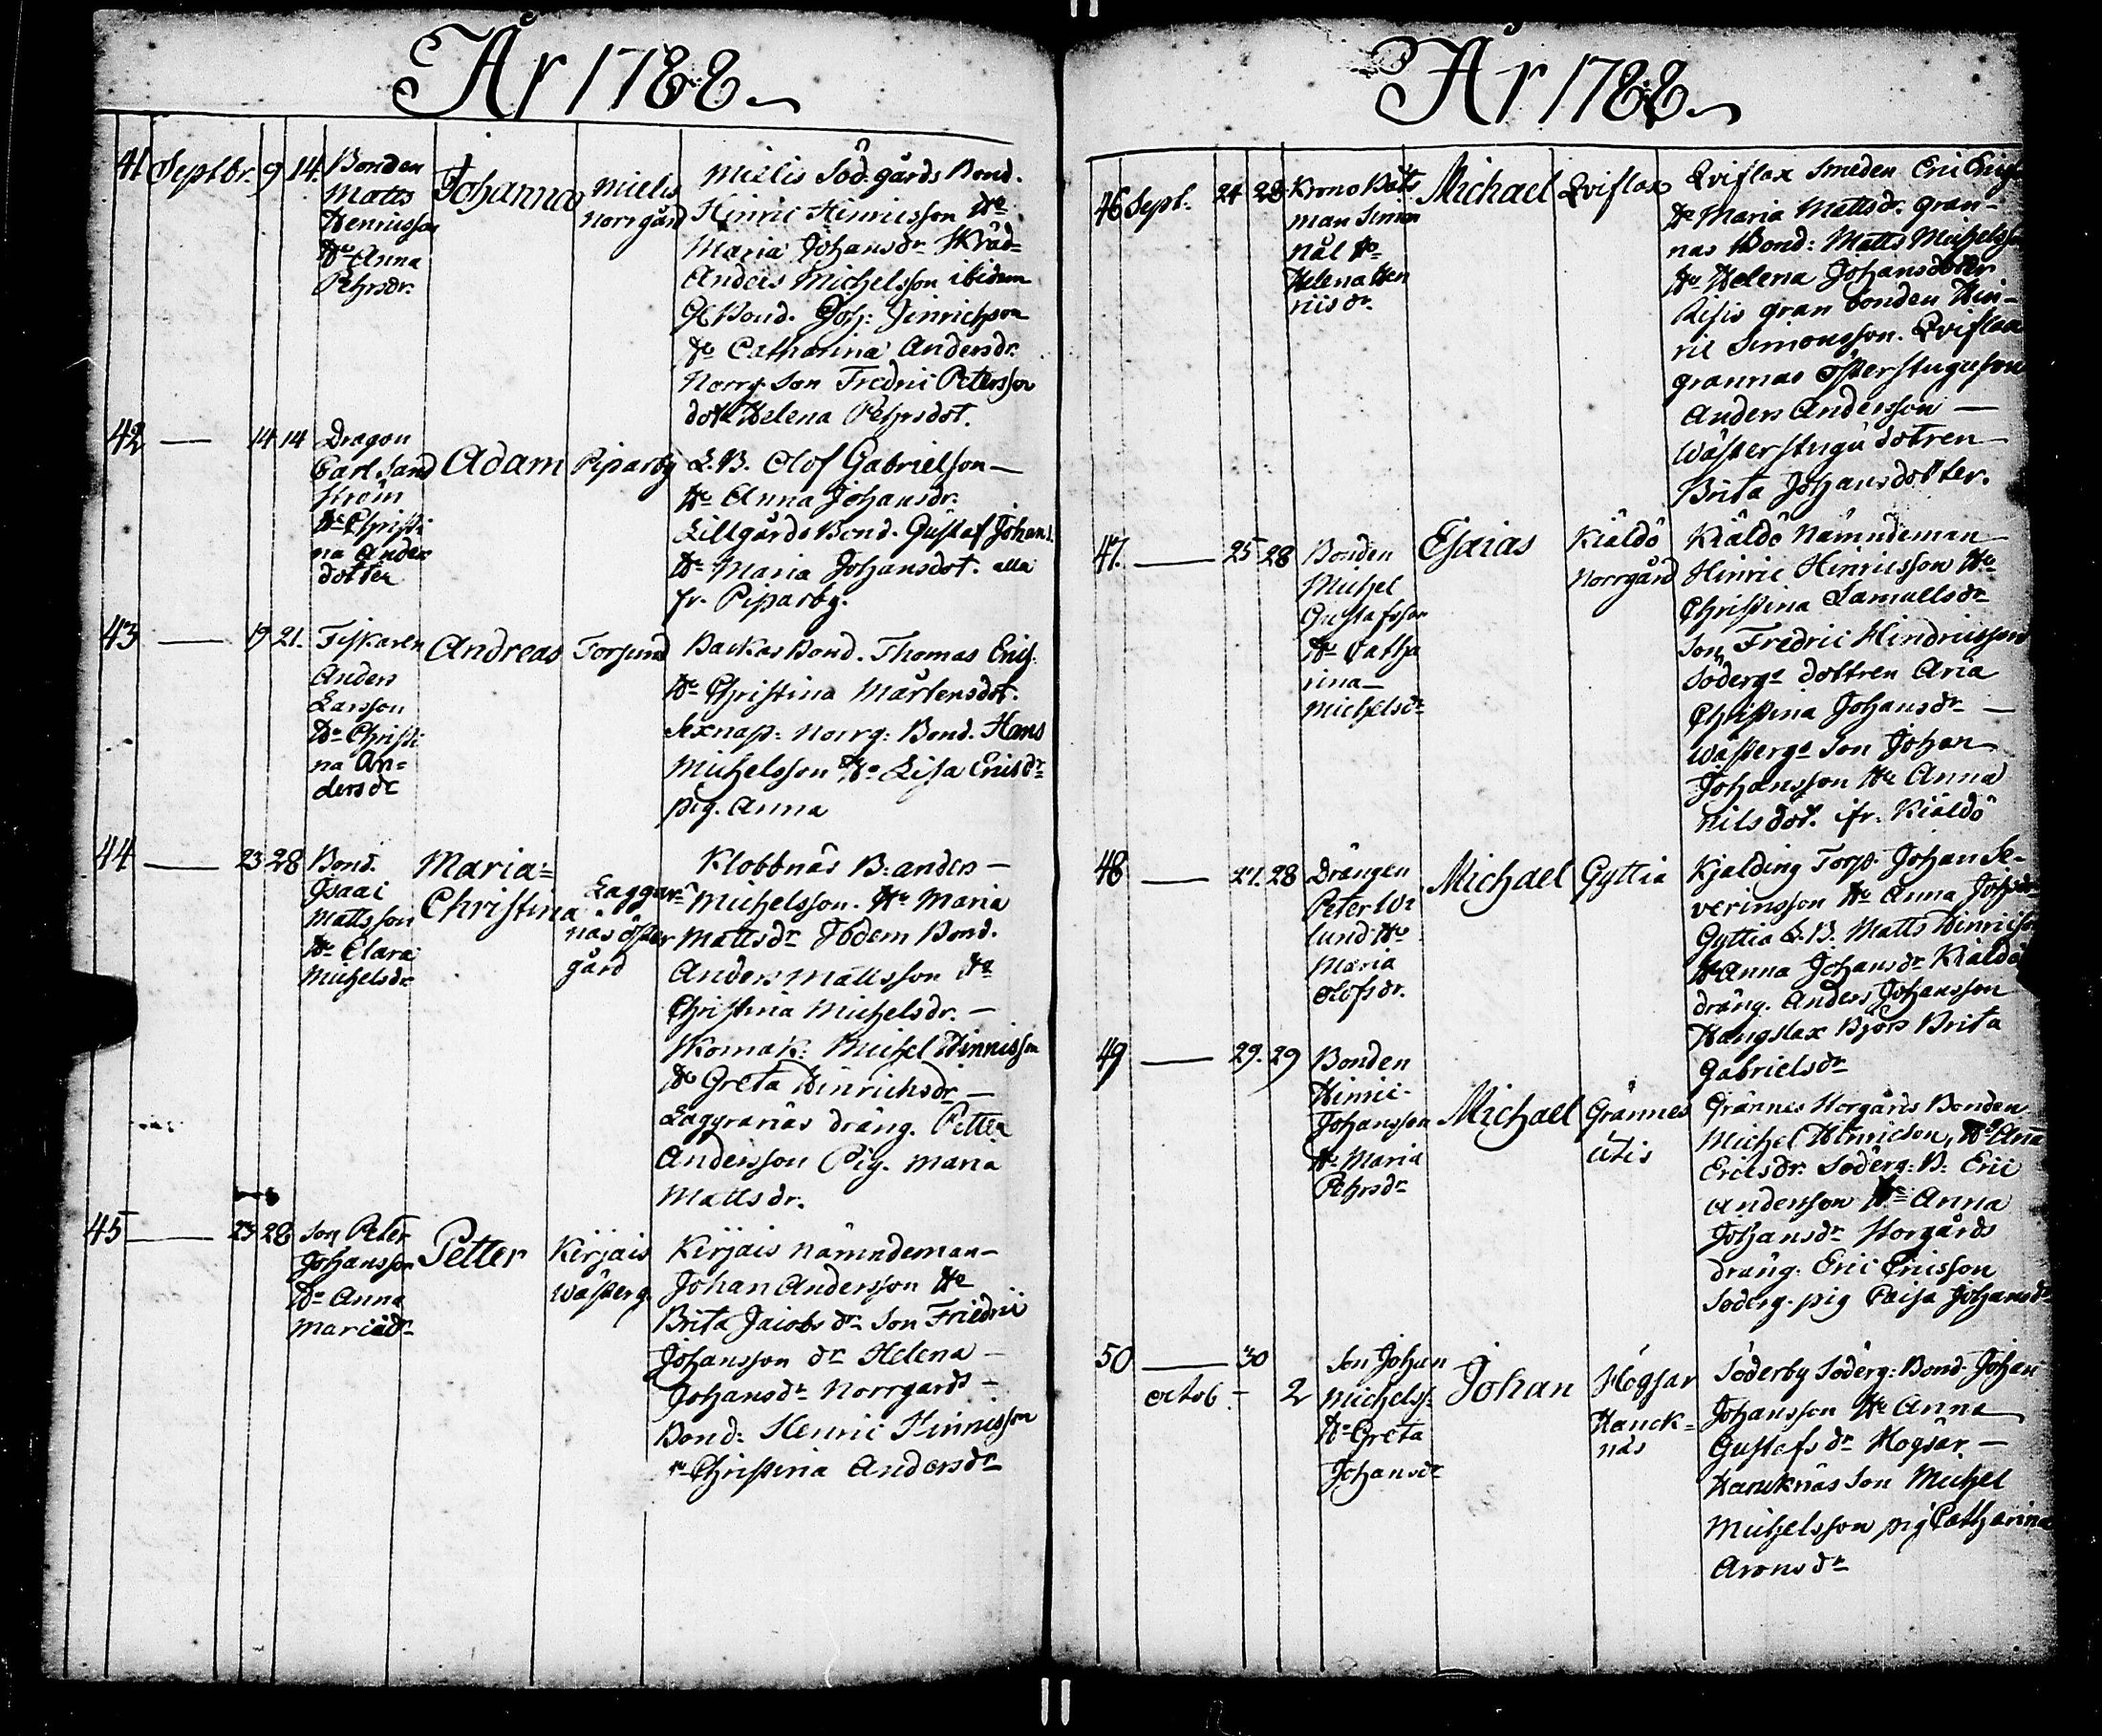 År 1788.
41 Septbr. 9 14. Bonden
Matts
Henricsson
Hu Anna
Pehrsdr.
Johanna
Mielis
Norrgård
Mielis Söd.gårds Bond.
Hinric Hinricsson Hu
Maria Johansdr. Skräd=
Anders Michelsson ibidem
Gl Bond. Joh: Jinrichson
Hu Catharina Andersdr.
Norrg. Son Fredric Petersson
dotr Helena Pehrsdot.
42 — 14 14 Dragon
Carl Sand
ström
Hu Christi
na Anders
dotter
Adam
Piparby
L.B. Olof Gabrielson —
Hu Anna Johansdr.
Lillgårds Bond. Gustaf Johans.
Hu Maria Johansdot. alla
fr. Piparby.
43 — 19 21. Fiskaren
Anders
Larsson
Hu Christi
na An=
dersdr
Andreas
Torsund
Backas Bond. Thomas Erics.
Hu Christina Mårtensdot.
Sexnap: Norrg: Bond. Hans
Michelsson Hu Lisa Ericsdr
pig. Anna
44 — 23 28 Bond.
Isaac
Mattsson
Hu Clara
Michelsdr
Maria=
Christina
Laggar=
näs Öster
gård
Klobbnäs B: Anders —
Michelsson. Hu Maria
Mattsdr Ibdem Bond.
Anders Mattsson Hu
Christina Michelsdr. —
Skomak: Michel Hinricsson
Hu Greta Hinrichsdr —
Laggranäs dräng. Petter
Andersson Pig. Maria
Mattsdr.
45 — 23 28 Son Peter
Johansson
Hu Anna
Mariædr
Petter
Kirjais
Wästerg.
Kirjais Nämndeman —
Johan Andersson Hu
Brita Jacobsdr Son Friedric
Johansson dr Helena —
Johansdr Norrgards —
Bond: Henric Hinricsson
Christina Andersdr
År 1788.
46 Sept. 24 28 Krono Båts
man Simon
Nål Hu
Helena Hen
ricsdr.
Michael
Qviflax
Qviflax Smeden Eric Erics
Hu Maria Mattsdr. gran-
nas Bond: Matts Michelsson
Hu Helena Johansdotter
Risis gran bonden Hin-
ric Simonsson. Qviflax
grannas Österstuguson
Anders Andersson —
Wästerstugu dotren
Brita Johansdotter.
47. — 25 28 Bonden
Michel
Gustafsson
Hu Catha
rina —
Michelsdr
Esaias
Kiäldö
Norrgård
Kiäldö Nämndeman
Hinric Hinricsson Hu
Christina Samuelsdr
Son Fredric Hindricsson
Söderg. dottren Aria
Christina Johansdr —
Wästerg. Son Johan
Johansson Hu Anna
Nilsdot. ifr. Kiäldö
48 — 27. 28 Drängen
Peter Wi
lund Hu
Maria
Olofsdr.
Michael
Gyttia
Kjalding Torp. Johan Se-
verinsson Hu Anna Johsdr
Gyttia L.B. Matts Hinricson
Hu Anna Johansdr Kialdö
dräng. Anders Johansson
Hangslax Björs Brita
Gabrielsdr
49 — 29. 29 Bonden
Hinric
Johansson
Hu Maria
Pehrsdr
Michael
Grännes
utis
Grännes Norgårds Bonden
Michel Hinricson, Hu Anna
Ericsdr. Söderg: B: Eric
Anderson Hu Anna
Johansdr Norgårds
dräng. Eric Ericsson
Söderg. pig Caisa Johansdr
50 — 30
octob. - 2
Son Johan
Michelss:
Hu Greta
Johansdr
Johan
Högsar
Hanck=
näs
Söderby Söderg: Bond. Johan
Johansson Hu Anna
Gustafsdr Högsar —
Hancknäs Son Michel
Michelsson pig Catharina
Aronsdr